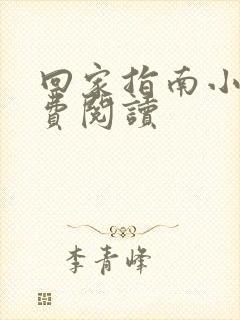 回家指南小
費閱讀
李青峰